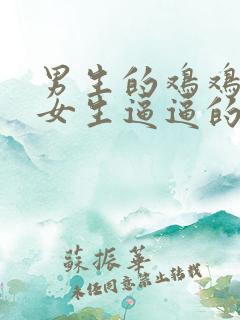 男生的鸡鸡
女生逼逼的
蘇振華
未经同意禁止转载